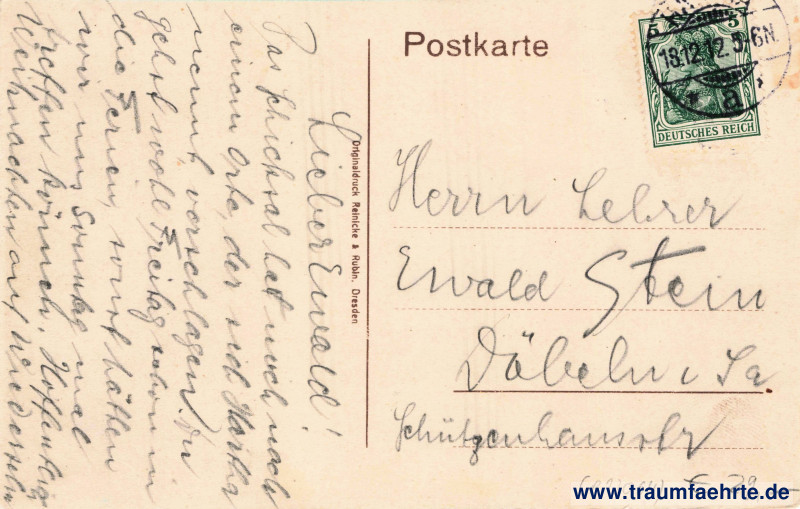 Postkarte
18.12.12. 5-6N.
a
5
5
DEUTSCHES REICH
Herrn Lehrer
Ewald Stein
Döbeln i. Sa.
Schützenhausstr
Originaldruck Reinicke & Rubin, Dresden
Lieber Ewald!
Das Schicksal hat mich nach
einem Orte, der sich
nennt verschlagen. Du
gehst wohl Freitag schon in
die Ferien, sonst hätten
wir uns Sonntag mal
treffen können. Hoffentlich
Weihnachten auf Wiedersehn
www.traumfaehrte.de